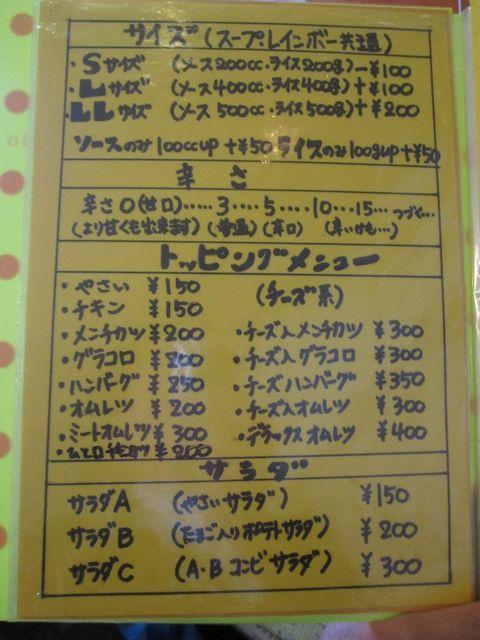 サイズ(スープ.レインボー共通)
・Sサイズ (ソース200cc・ライス200g)ー¥100
・Lサイズ (ソース400cc・ライス400g)+¥100
・LLサイズ (ソース500cc・ライス500g)+¥200
ソースのみ100ccup+¥50 ライスのみ100gup+¥50
辛さ
辛さ0(甘口)……3…5……10…15…つづく…
(より甘くも出来ます)(普通)(辛口)(辛いかも…)
トッピングメニュー
・やさい ¥150
・チキン ¥150
(チーズ系)
・メンチカツ ¥200
・チーズ入メンチカツ ¥300
・グラコロ ¥200
・チーズ入グラコロ ¥300
・ハンバーグ ¥250
・チーズハンバーグ ¥350
・オムレツ ¥200
・チーズ入オムレツ ¥300
・ミートオムレツ ¥300
・デラックスオムレツ ¥400
・ひと口チキカツ ¥200
サラダ
サラダA (やさいサラダ) ¥150
サラダB (たまご入りポテトサラダ) ¥200
サラダC (A・Bコンビサラダ) ¥300